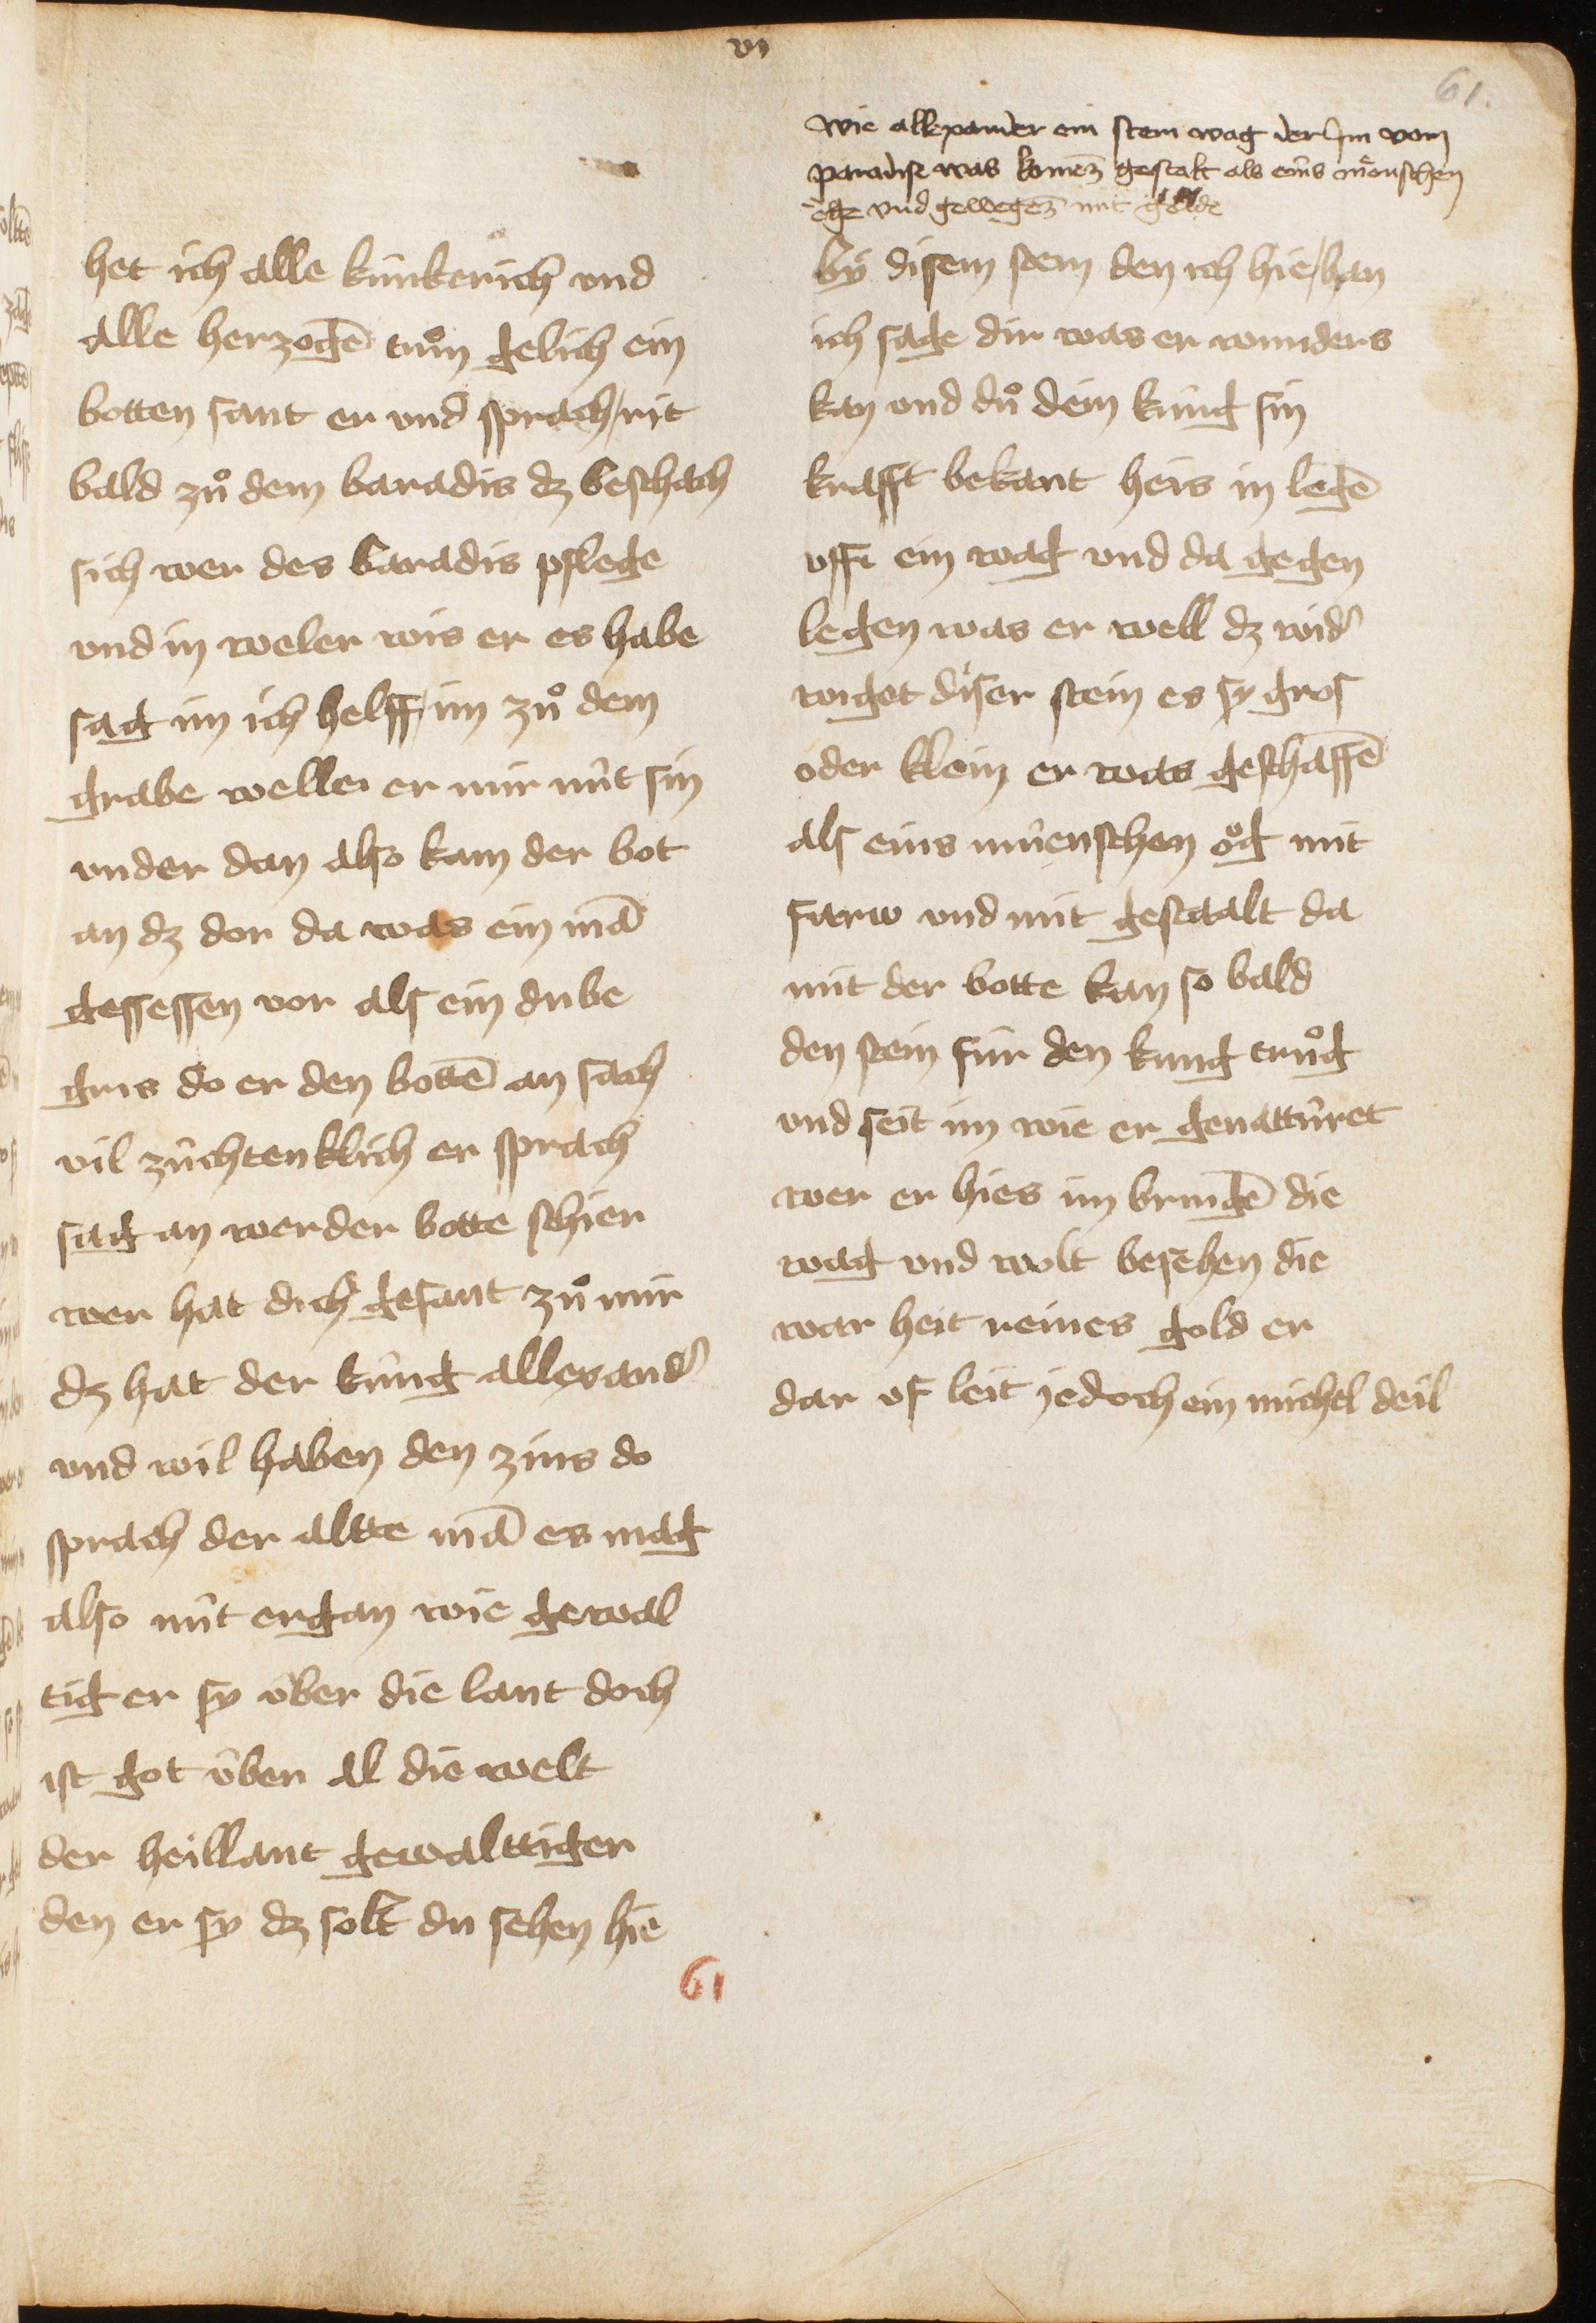 vi
61.
het ich alle kúnkerich vnd
alle herzogē trůn gelich ein
botten sant er vnd sprach / rit
bald zů dem baradis dz beschach
sich wer des baradis pflege
vnd in weler wis er es habe
sag im ich helff / im zů dem
grabe welle er mir nút sin
vnder dan also kam der bot
an dz dor da was ein mā
gessessen vor als ein dube
gris do er den bottē an sach
vil zúchtenklich er sprach
sag an werder botte schier
wer hat dich gesant zů mir
dz hat der kúng allexand'
vnd wil haben den zins do
sprach der altte mā es mag
also nút ergan wie gewal
tig er sy v́ber die lant doch
ist got v́ber al die welt
der heillant gewalttiger
den er sy dz solt du sehen hie
61
wie allexander ein stein wag der im vom
paradise was komēn gestalt als eins mönschen
öge vnd gewegen mit golde
by disem stein den ich hie / han
ich sage dir was er wunders
kan vnd dů dem kúng sin
krafft bekant heis in legē
vff ein wag vnd da gegen
legen was er well dz wid'
wiget diser stein es sy gros
oder klein er was geschaffē
als eins múenschen og mit
farw vnd mit gestaalt da
mit der botte kan so bald
den stein fúr den kung trůg
vnd seit im wie er genattúret
wer er hies im bringē die
wag vnd wolt besehen die
war heit reines gold er
dar vf leit jedoch ein michel deil